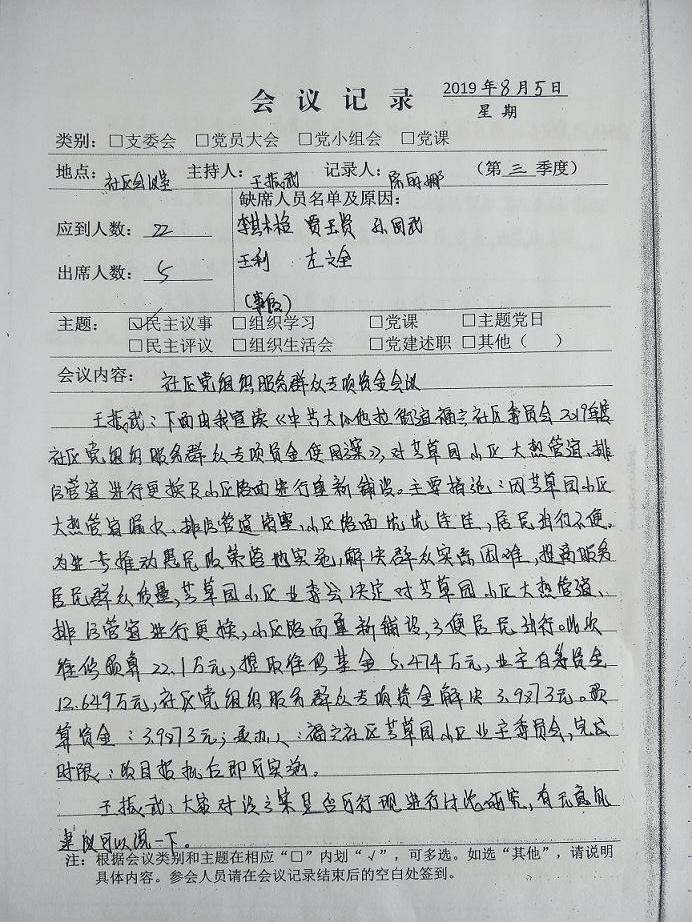 会议记录
2019年8月5日
星期
类别：□支委会 □党员大会 □党小组会 □党课
地点：社区会议室 主持人：王振武 记录人：陈丽娜 （第三季度）
缺席人员名单及原因：
应到人数：22
贾玉贤 孙国武
出席人数：5
王利 左文全
（事假）
主题：☑民主议事 □组织学习 □党课 □主题党日
□民主评议 □组织生活会 □党建述职 □其他（ ）
会议内容：社区党组织服务群众专项资金会议
王振武：下面由我宣读《中共大 街道福宁社区委员会2019年度
社区党组织服务群众专项资金使用方案》，对芳草园小区大热管道、排
污管道进行更换及小区路面进行重新铺设。主要措施：因芳草园小区
大热管道漏水、排污管道堵塞、小区路面坑坑洼洼，居民出行不便。
为进一步推动惠民政策落地实施，解决群众实际困难，提高服务
居民群众质量，芳草园小区业委会决定对芳草园小区大热管道、
排污管道进行更换，小区路面重新铺设，方便居民出行。此次
维修预算22.1万元，提取维修基金5.474万元，业主自筹资金
12.649万元，社区党组织服务群众专项资金解决3.987万元。预
算资金：3.987万元；承办人：福宁社区芳草园小区业主委员会，完成
时限：项目报批后即可实施。
王振武：大家对该方案是否可行现进行讨论研究，有无意见
建议可以说一下。
注：根据会议类别和主题在相应“□”内划“√”，可多选。如选“其他”，请说明
具体内容。参会人员请在会议记录结束后的空白处签到。